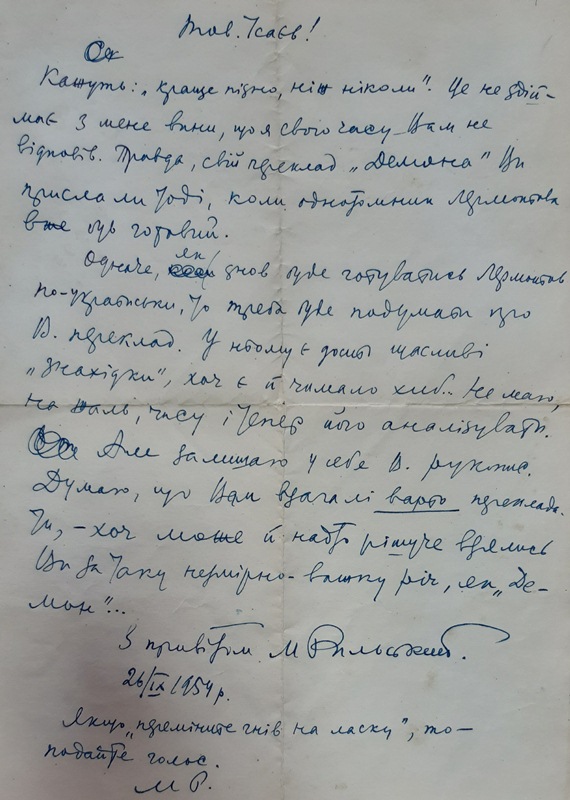 Тов. Ісаєв!
Кажуть: „краще пізно, ніж ніколи". Це не здій-
має з мене вини, що я свого часу Вам не
відповів. Правда, свій переклад „Демона" Ви
прислали тоді, коли однотомник Лермонтова
вже був готовий.
Одначе, як знов буде готуватись Лермонтов
по-українськи, то треба буде подумати про
В. переклад. У ньому є досить щасливі
„знахідки", хоч є й чимало хиб. Не маю,
на жаль, часу і тепер його аналізувати.
Але залишаю у себе В. рукопис.
Думаю, що Вам взагалі варто переклада-
ти, – хоч може й надто рішуче взялись
Ви за таку незмірно-важку річ, як „Де-
мон"...
З привітом М Рильський.
26/IX 1954 р.
Якщо „переміните гнів на ласку", то –
подайте голос.
М Р.